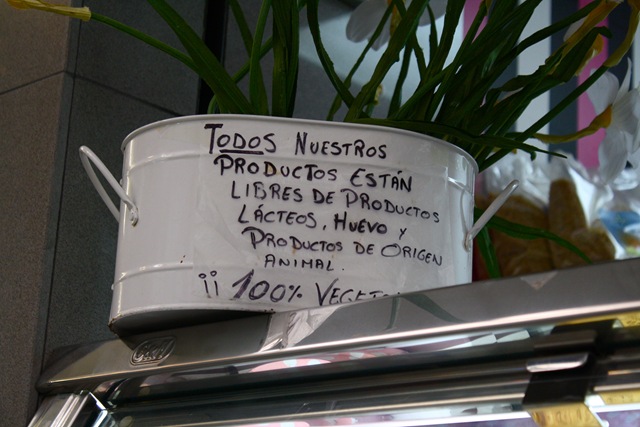 TODOS NUESTROS
PRODUCTOS ESTÁN
LIBRES DE PRODUCTOS
LÁCTEOS, HUEVO Y
PRODUCTOS DE ORIGEN
ANIMAL.
¡¡ 100%